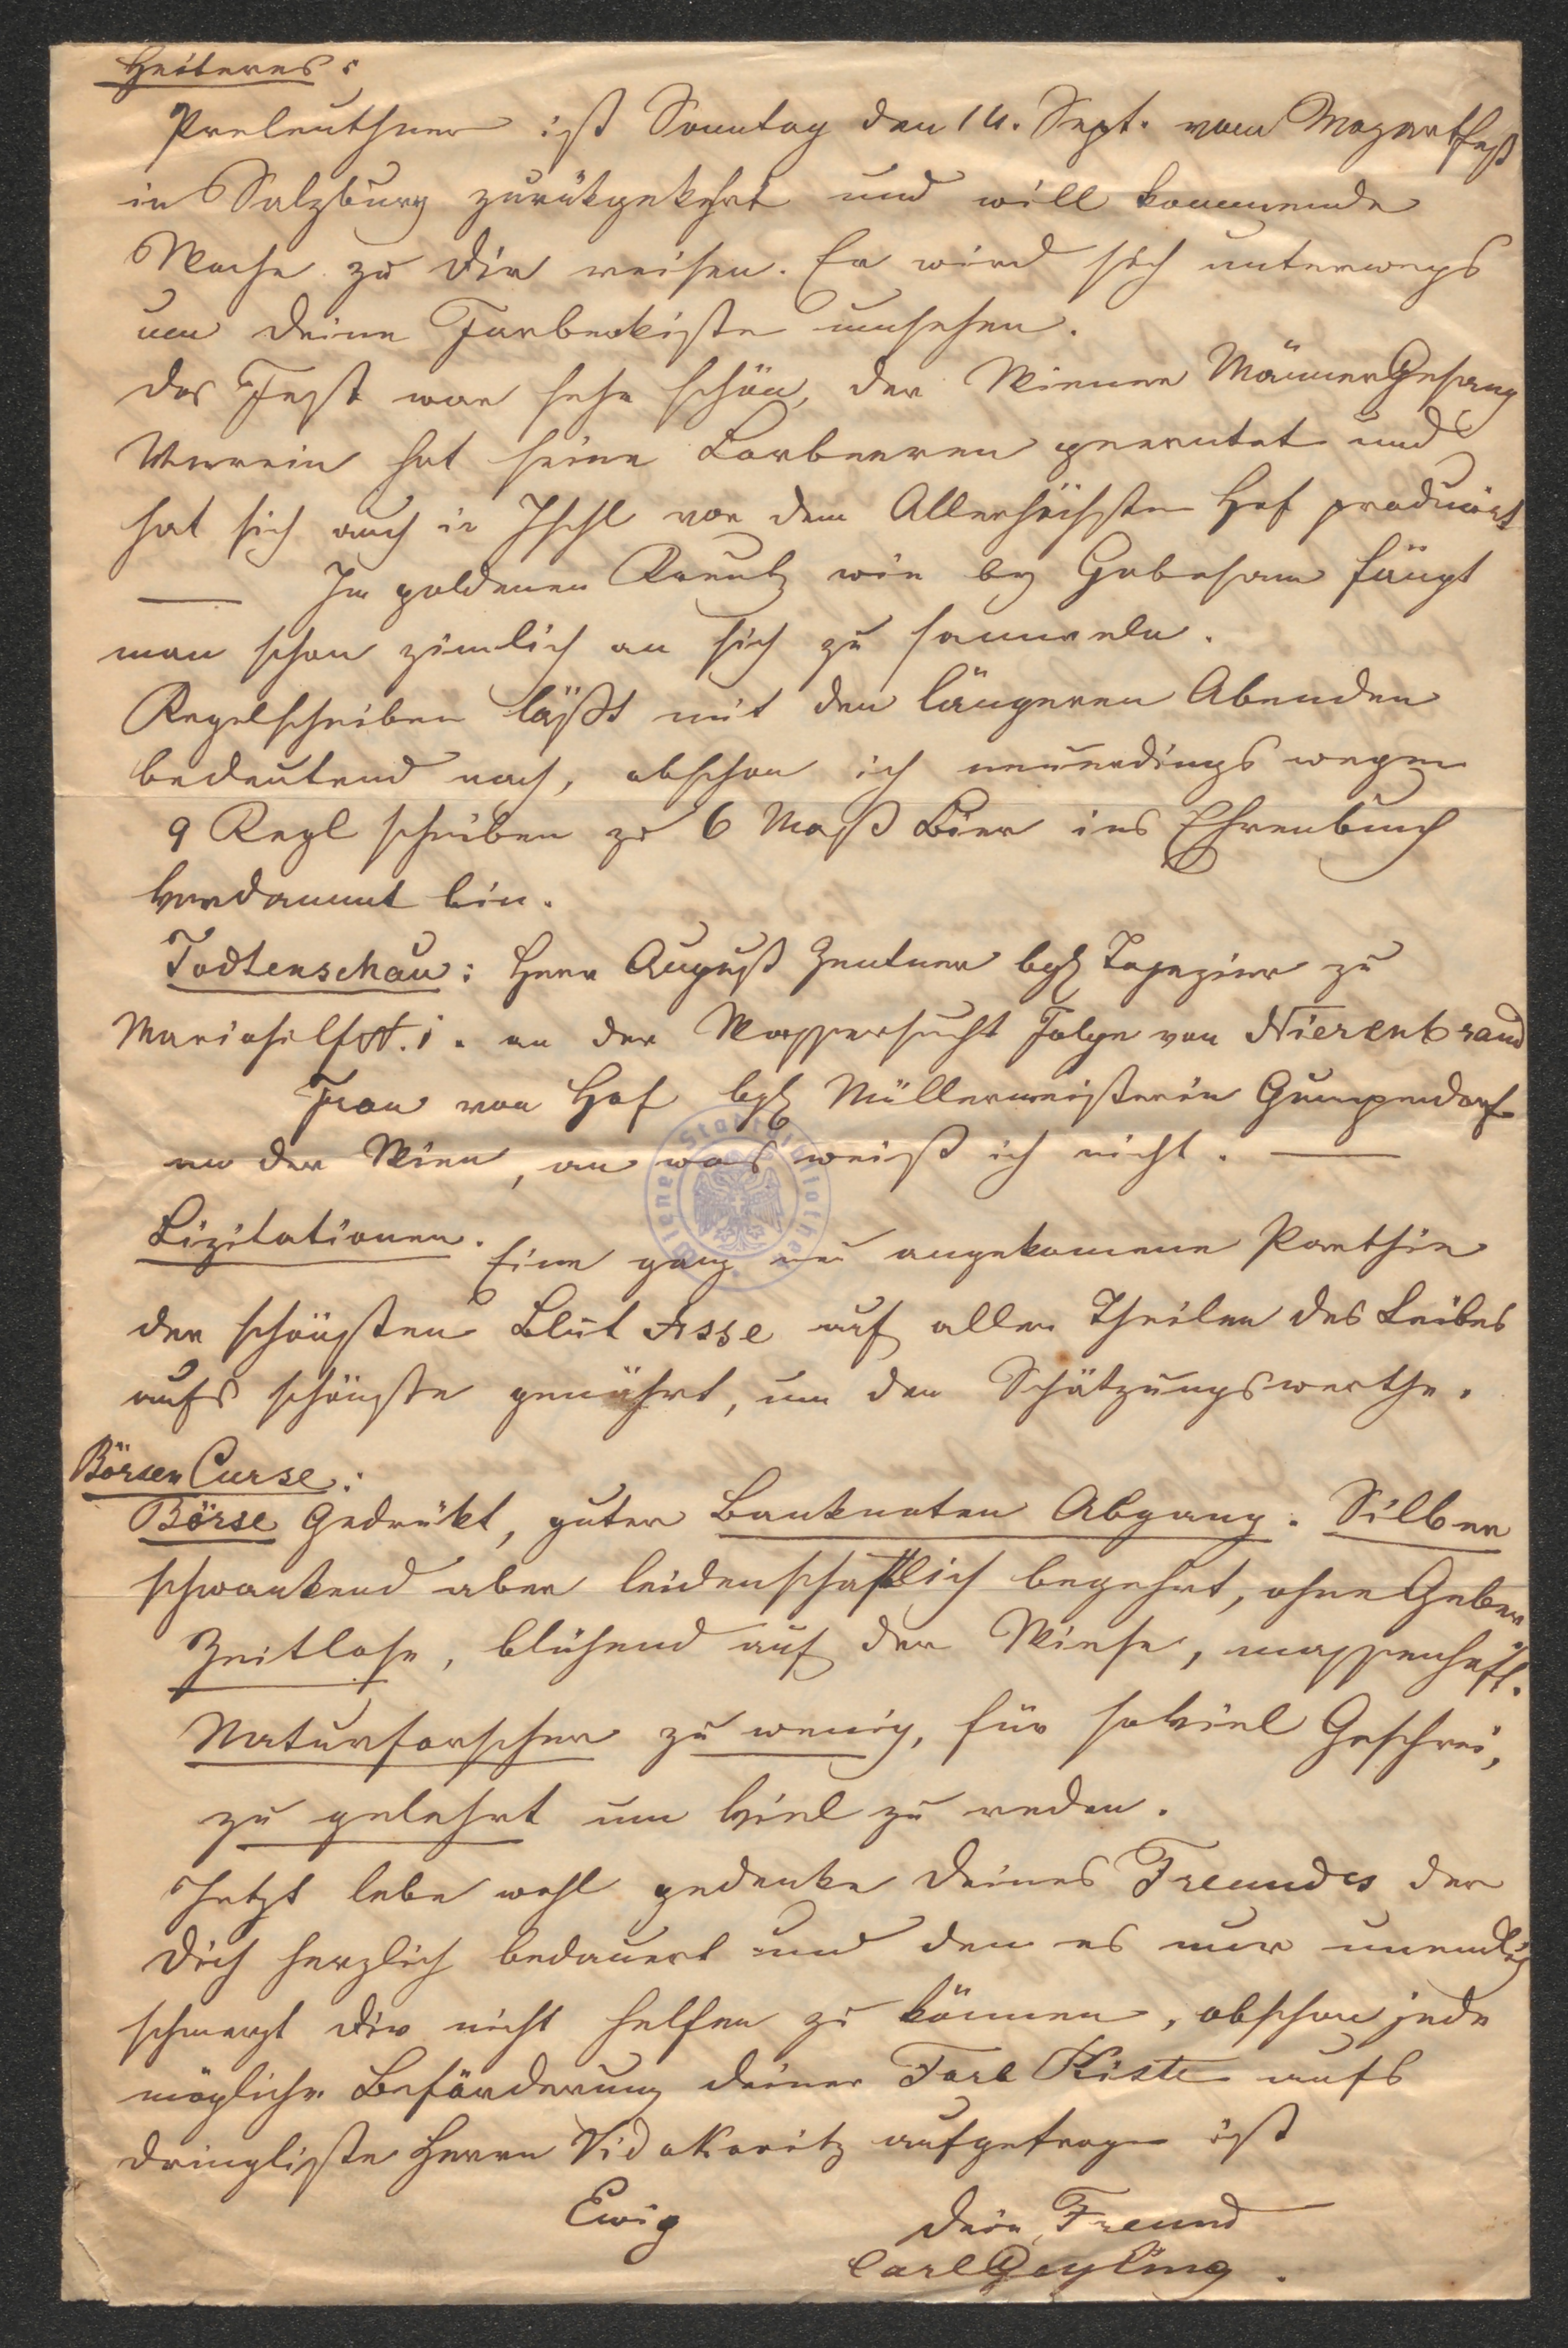 Heiteres:
Preleuthner ist Sonntag den 14. Sept. vom Mozartfest
in Salzburg zurükgekehrt und will kommende
Woche zu Dir reisen. Er wird sich unterwegs
um Deine Farbenkiste umsehen.
Das Fest war sehr schön, der Wiener MännerGesang
Verein hat seine Lorbeeren geerntet und
hat sich auch in Ischl vor dem Allerhöchsten Hof produzirt
— Im goldenen Kreutz wie by Gabesam fängt
man schon zimlich an sich zu sammeln.
Kegelscheiben läßt mit den längeren Abenden
bedeutend nach, obschon ich neuerdings wegen
9 Kegl scheiben zu 6 Maß Bier ins Ehrenbuch
verdammt bin.
Todtenschau: Herr August Zentner bgl Tapezierer zu
Mariahilf st. i. an der Wassersucht Folge von Nierenbrand
Frau von Hof bgl Müllermeisterin Gumpendorf
an der Wien, an was weiß ich nicht. —
Wiener Stadtbibliothek
Lizitationen. Eine ganz neu angekommene Parthie
der schönsten Blut Asse auf allen Theilen des Leibes
aufs schönste genährt, um den Schätzungswerthe.
Börsen Curse:
Börse Gedrükt, guter Banknoten Abgang. Silber
schwankend aber leidenschaftlich begehrt, ohne Geber
Zeitlose, blühend auf der Wiese, massenhaft.
Naturforscher zu wenig, für soviel Geschrei,
zu gelehrt um viel zu reden.
Jetzt lebe wohl gedenke Deines Freundes der
Dich herzlich bedauert und den es nur unendlich
schmerzt Dir nicht helfen zu können, obschon jede
mögliche Beförderung deiner Farb Kiste aufs
dringlichste Herrn Vidakovitz aufgetragen ist
Ewig Dein Freund
Carl Geyling.